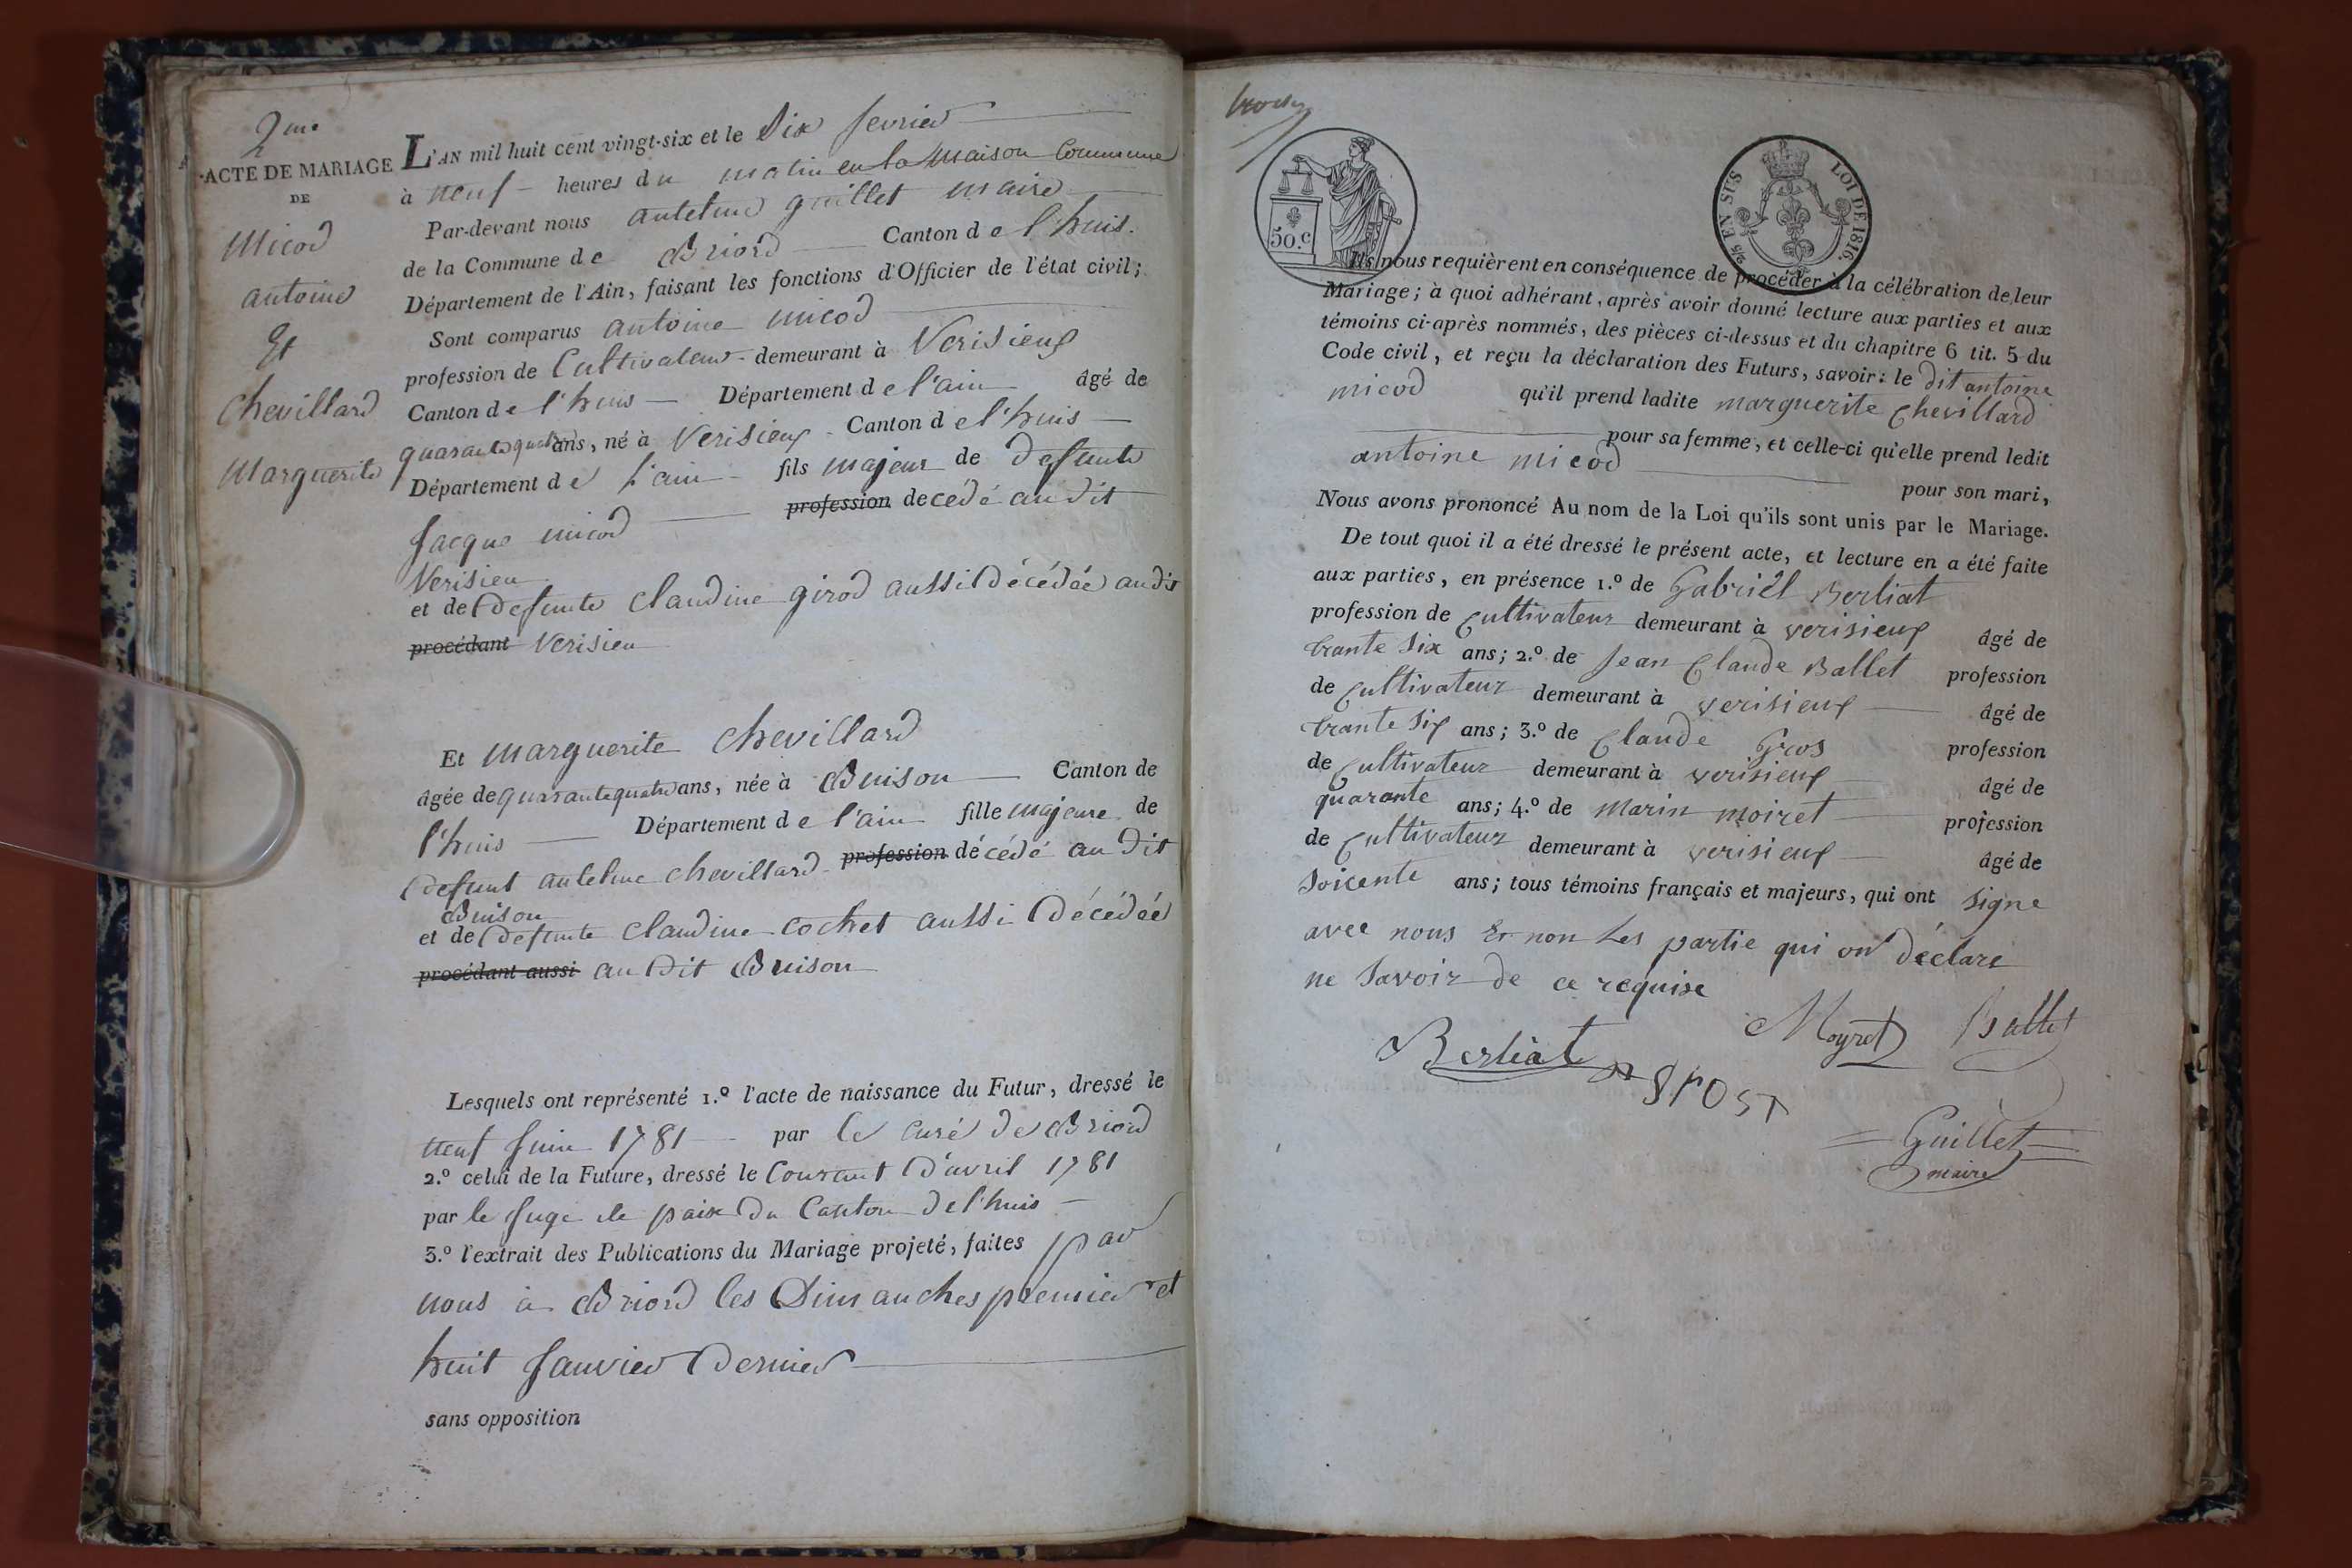 2me
ACTE DE MARIAGE
DE
Micod
antoine
Et
Chevillard
Marguerite
L'AN mil huit cent vingt-six et le Dix fevrier
à neuf heures du matin en la maison Commune
Par-devant nous antelme guillet maire
de la Commune de Briord Canton de l'huis.
Département de l'Ain, faisant les fonctions d'Officier de l'état civil;
Sont comparus antoine micod
profession de Cultivateur demeurant à Verisieux
Canton de l'huis Département de l'ain âgé de
quarante quatre ans, né à Verisieux Canton de l'huis
Département de l'ain fils majeur de defunte
Jacque micod profession decédé au dit
Verisieu
et de defunte Claudine girod aussi décédée au dit
procédant Verisieu
Et marguerite Chevillard
âgée de quarante quatre ans, née à Buison Canton de
l'huis Département de l'ain fille majeure de
defunt antelme chevillard profession décédé au dit
Buison
et de defunte Claudine Cochet aussi Décédée
procédant aussi au Dit Buison
Lesquels ont représenté 1.º l'acte de naissance du Futur, dressé le
neuf Juin 1781 par le curé de Briord
2.º celui de la Future, dressé le Courant d'avril 1781
par le Juge de paix du Canton de l'huis
3.º l'extrait des Publications du Mariage projeté, faites par
nous à Briord les Dimanches premier et
huit Janvier Dernier
sans opposition
50.c
25 EN SUS
LOI DE 1816.
Ils nous requièrent en conséquence de procéder à la célébration de leur
Mariage; à quoi adhérant, après avoir donné lecture aux parties et aux
témoins ci-après nommés, des pièces ci-dessus et du chapitre 6 tit. 5 du
Code civil, et reçu la déclaration des Futurs, savoir: le dit antoine
micod qu'il prend ladite marguerite chevillard
pour sa femme, et celle-ci qu'elle prend ledit
antoine micod pour son mari,
Nous avons prononcé Au nom de la Loi qu'ils sont unis par le Mariage.
De tout quoi il a été dressé le présent acte, et lecture en a été faite
aux parties, en présence 1.º de Gabriêl Berliat
profession de Cultivateur demeurant à verisieux âgé de
trante six ans; 2.º de Jean Claude Ballet profession
de Cultivateur demeurant à verisieux âgé de
trante six ans; 3.º de Claude Gros profession
de Cultivateur demeurant à verisieux âgé de
quarante ans; 4.º de marin moiret profession
de Cultivateur demeurant à verisieux âgé de
soicente ans; tous témoins français et majeurs, qui ont signe
avec nous Et non Les partie qui on déclare
ne savoir de ce requise
Berliat Moyret Ballet
Guillet
maire